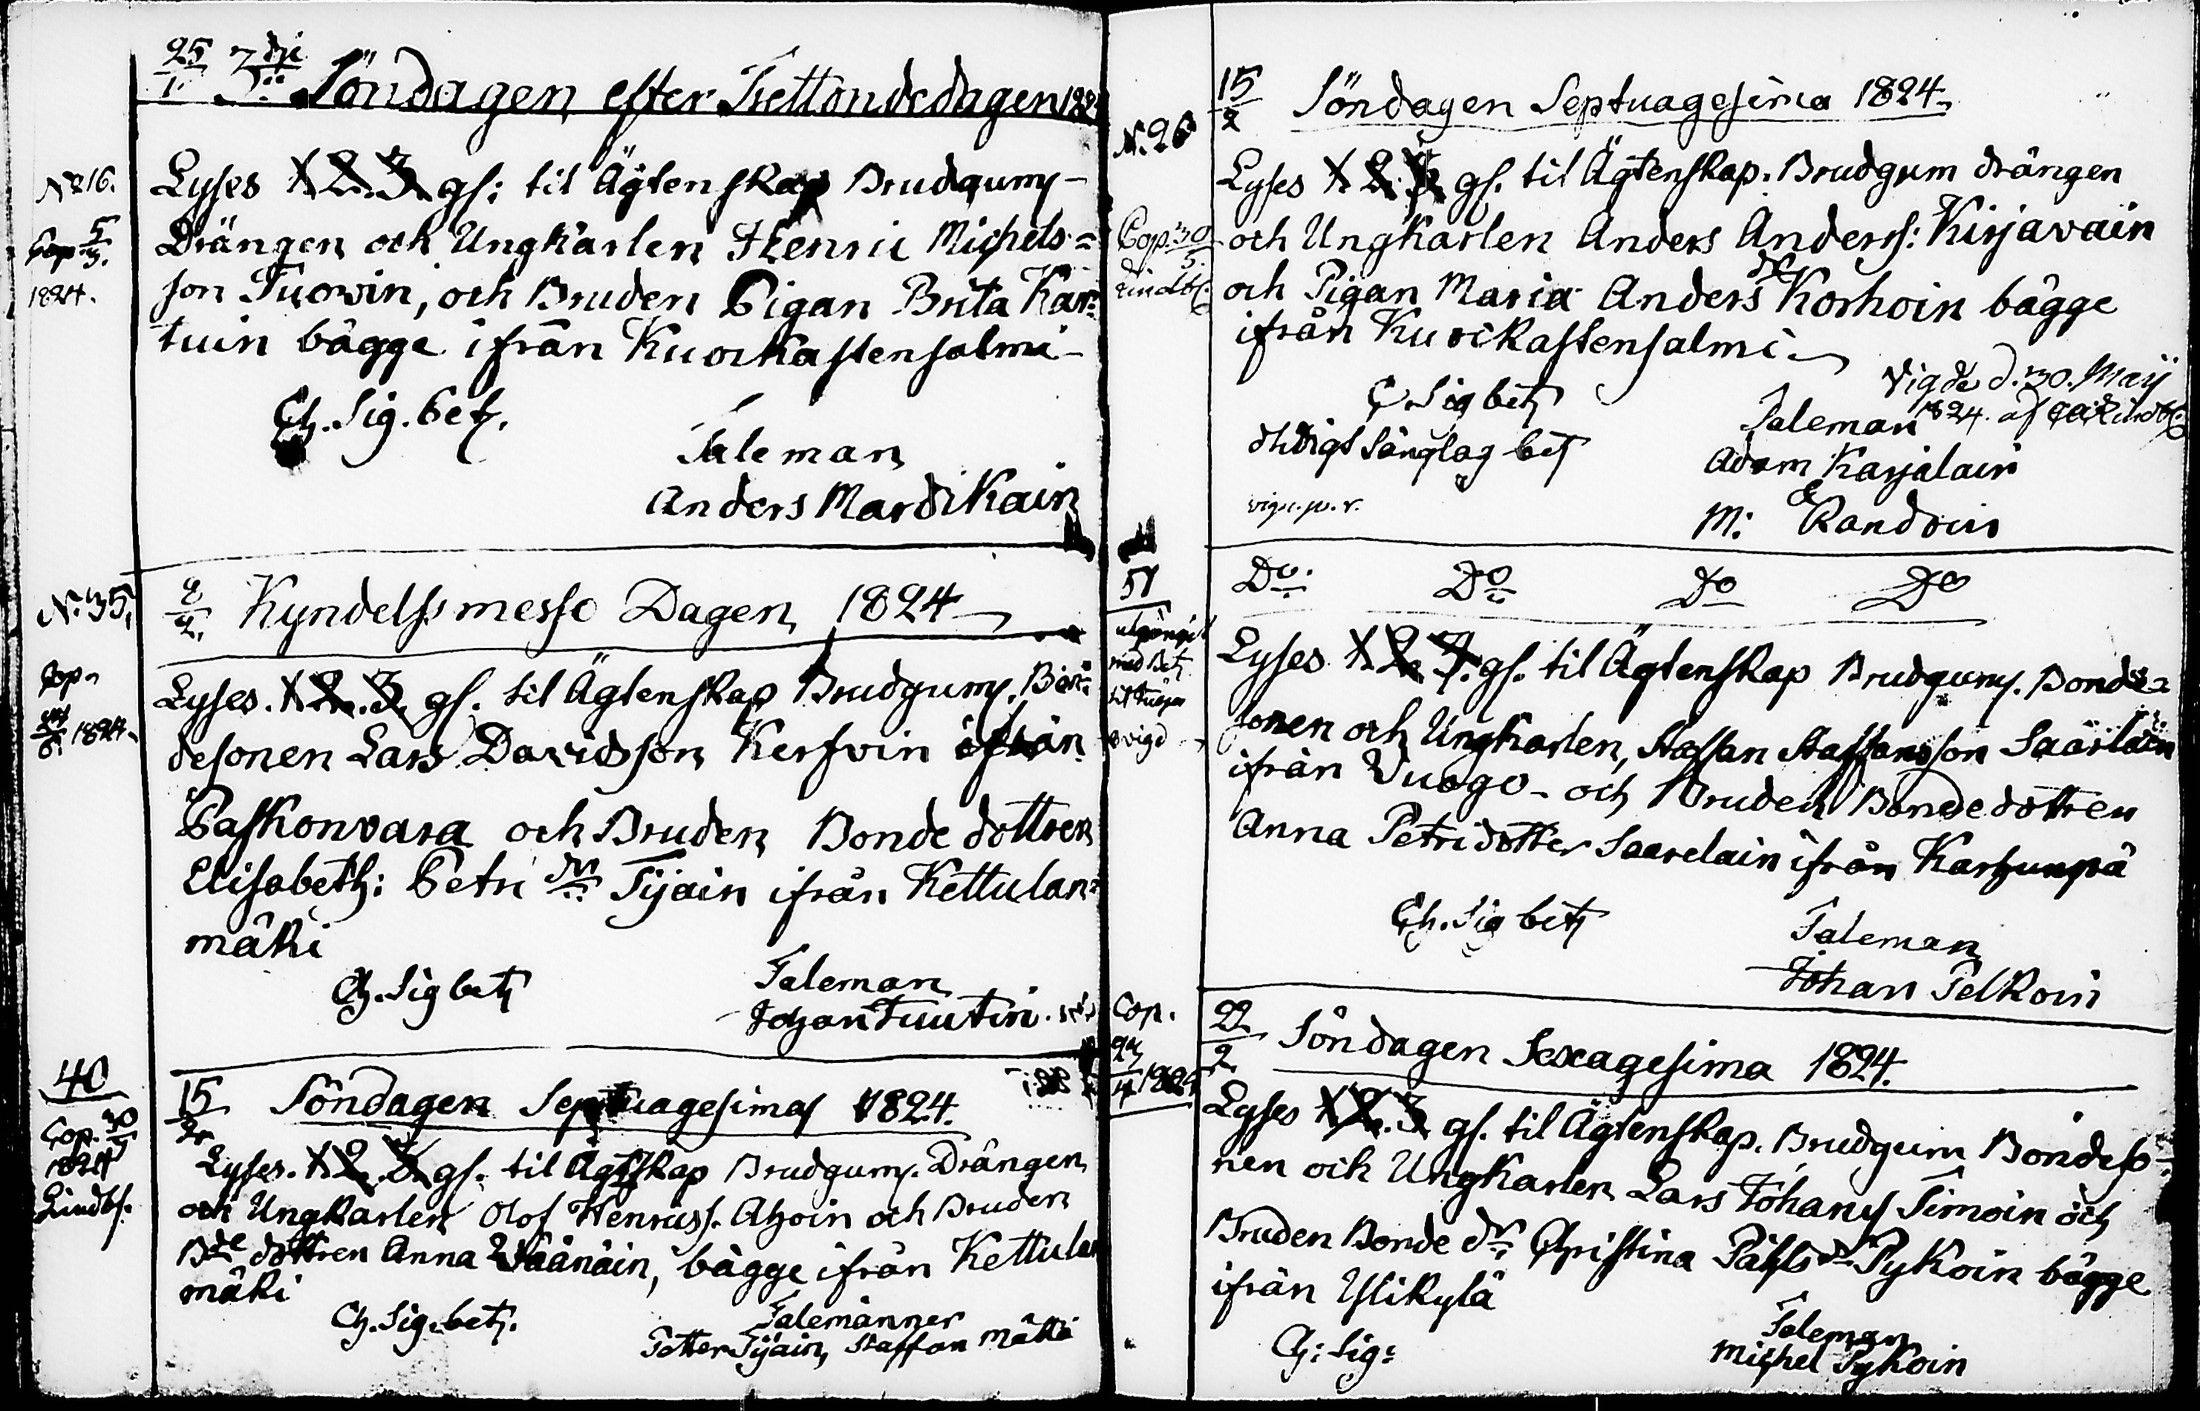 25/1. 3die Söndagen efter Trettondedagen 1824
No 16.
Cop. 5/3.
1824.
Lyses 1. 2. 3. gs: til Ägtenskap Brudgum-
Drängen och Ungkarlen Henric Michels=
son Tuovin, och Bruden Pigan Brita Kar=
tuin bägge ifrån Kuorkastensalmi-
Ch. Sig. bet.
Taleman
Anders Mardikain
No. 35.
2/2. Kyndelsmesso Dagen, 1824
Cop.
1824
Lyses. 1. 2. 3. gs. til Ägtenskap Brudgum. Bon=
desonen Lars Davidsson Kerfvin ifrån
Paskonvara och Bruden Bonde dottren
Elisabeth: Petri dr Tijain ifrån Kettulan=
mäki
Ch. Sig bet
Taleman
Johan Tuutin
40
15/2. Söndagen Septuagesima 1824.
Cop. 30/5
1824
Lindbf.
Lyses. 1. 2. 3. gs. til Ägtskap Brudgum. Drängen
och Ungkarlen Olof Henriss. Ahoin och Bruden
Bde dottren Anna Väänäin, bägge ifrån Kettulan
mäki
Ch. Sig. bet.
Talemänner
Petter Tijain, Staffan Mätti
No. 26
15/2 Söndagen Septuagesima 1824.
Lyses 1. 2. 3. gs. til Ägtenskap. Brudgum drängen
Cop. 30/5.
Lindbf.
och Ungkarlen Anders Anderss: Kirjavain
och Pigan Maria Anders dr Korhoin bägge
ifrån Kuorkastensalmi
Vigde d. 30. Maij
1824. af Lindbf.
C. Sig bet
Taleman
Sänglag bet
Adam Karjalain
M: Randoin
51
Do. Do Do Do
med Bet
ovigd
Lyses 1. 2. 3. gs. til Ägtenskap Brudgum. Bonde=
sonen och Ungkarlen, Staffan Staffansson Saarelain
ifrån Vuogo- och Bruden Bonde dottren
Anna Petridotter Saarelain ifrån Karhunpä
Ch. Sig bet
Taleman
Johan Pelkoin
Cop.
22/2 Söndagen Sexagesima 1824.
Lyses 1. 2. 3. gs. til Ägtenskap. Brudgum Bondeso=
nen och Ungkarlen Lars Johans Timoin och
Bruden Bonde dr Christina Påhls dr Pykoin bägge
ifrån Ylikylä
Ch: Sig:
Taleman
Michel Pykoin